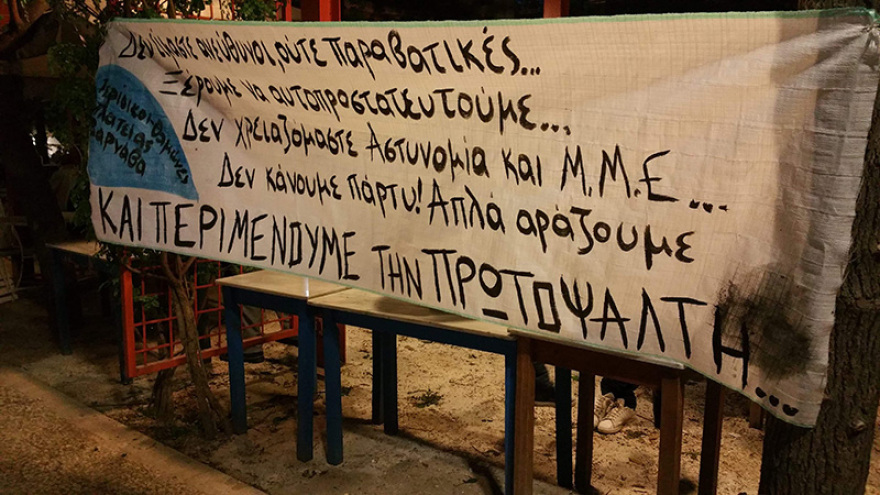 Δεν είμαστε ανεύθυνοι, ούτε παραβατικές...
Ξέρουμε να αυτοπροστατευτούμε...
Δεν χρειαζόμαστε Αστυνομία και Μ.Μ.Ε...
Δεν κάνουμε πάρτυ! Απλά αράζουμε
ΚΑΙ ΠΕΡΙΜΕΝΟΥΜΕ ΤΗΝ ΠΡΩΤΟΨΑΛΤΗ....
Περίοικοι-θαμώνες
Πλατείας
Βαρνάβα